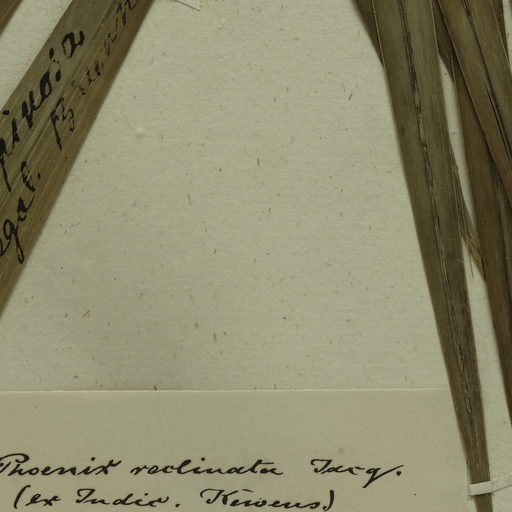 pinosa
gal. B
Phoenix reclinata Jacq.
(ex Indic. Kewens.)